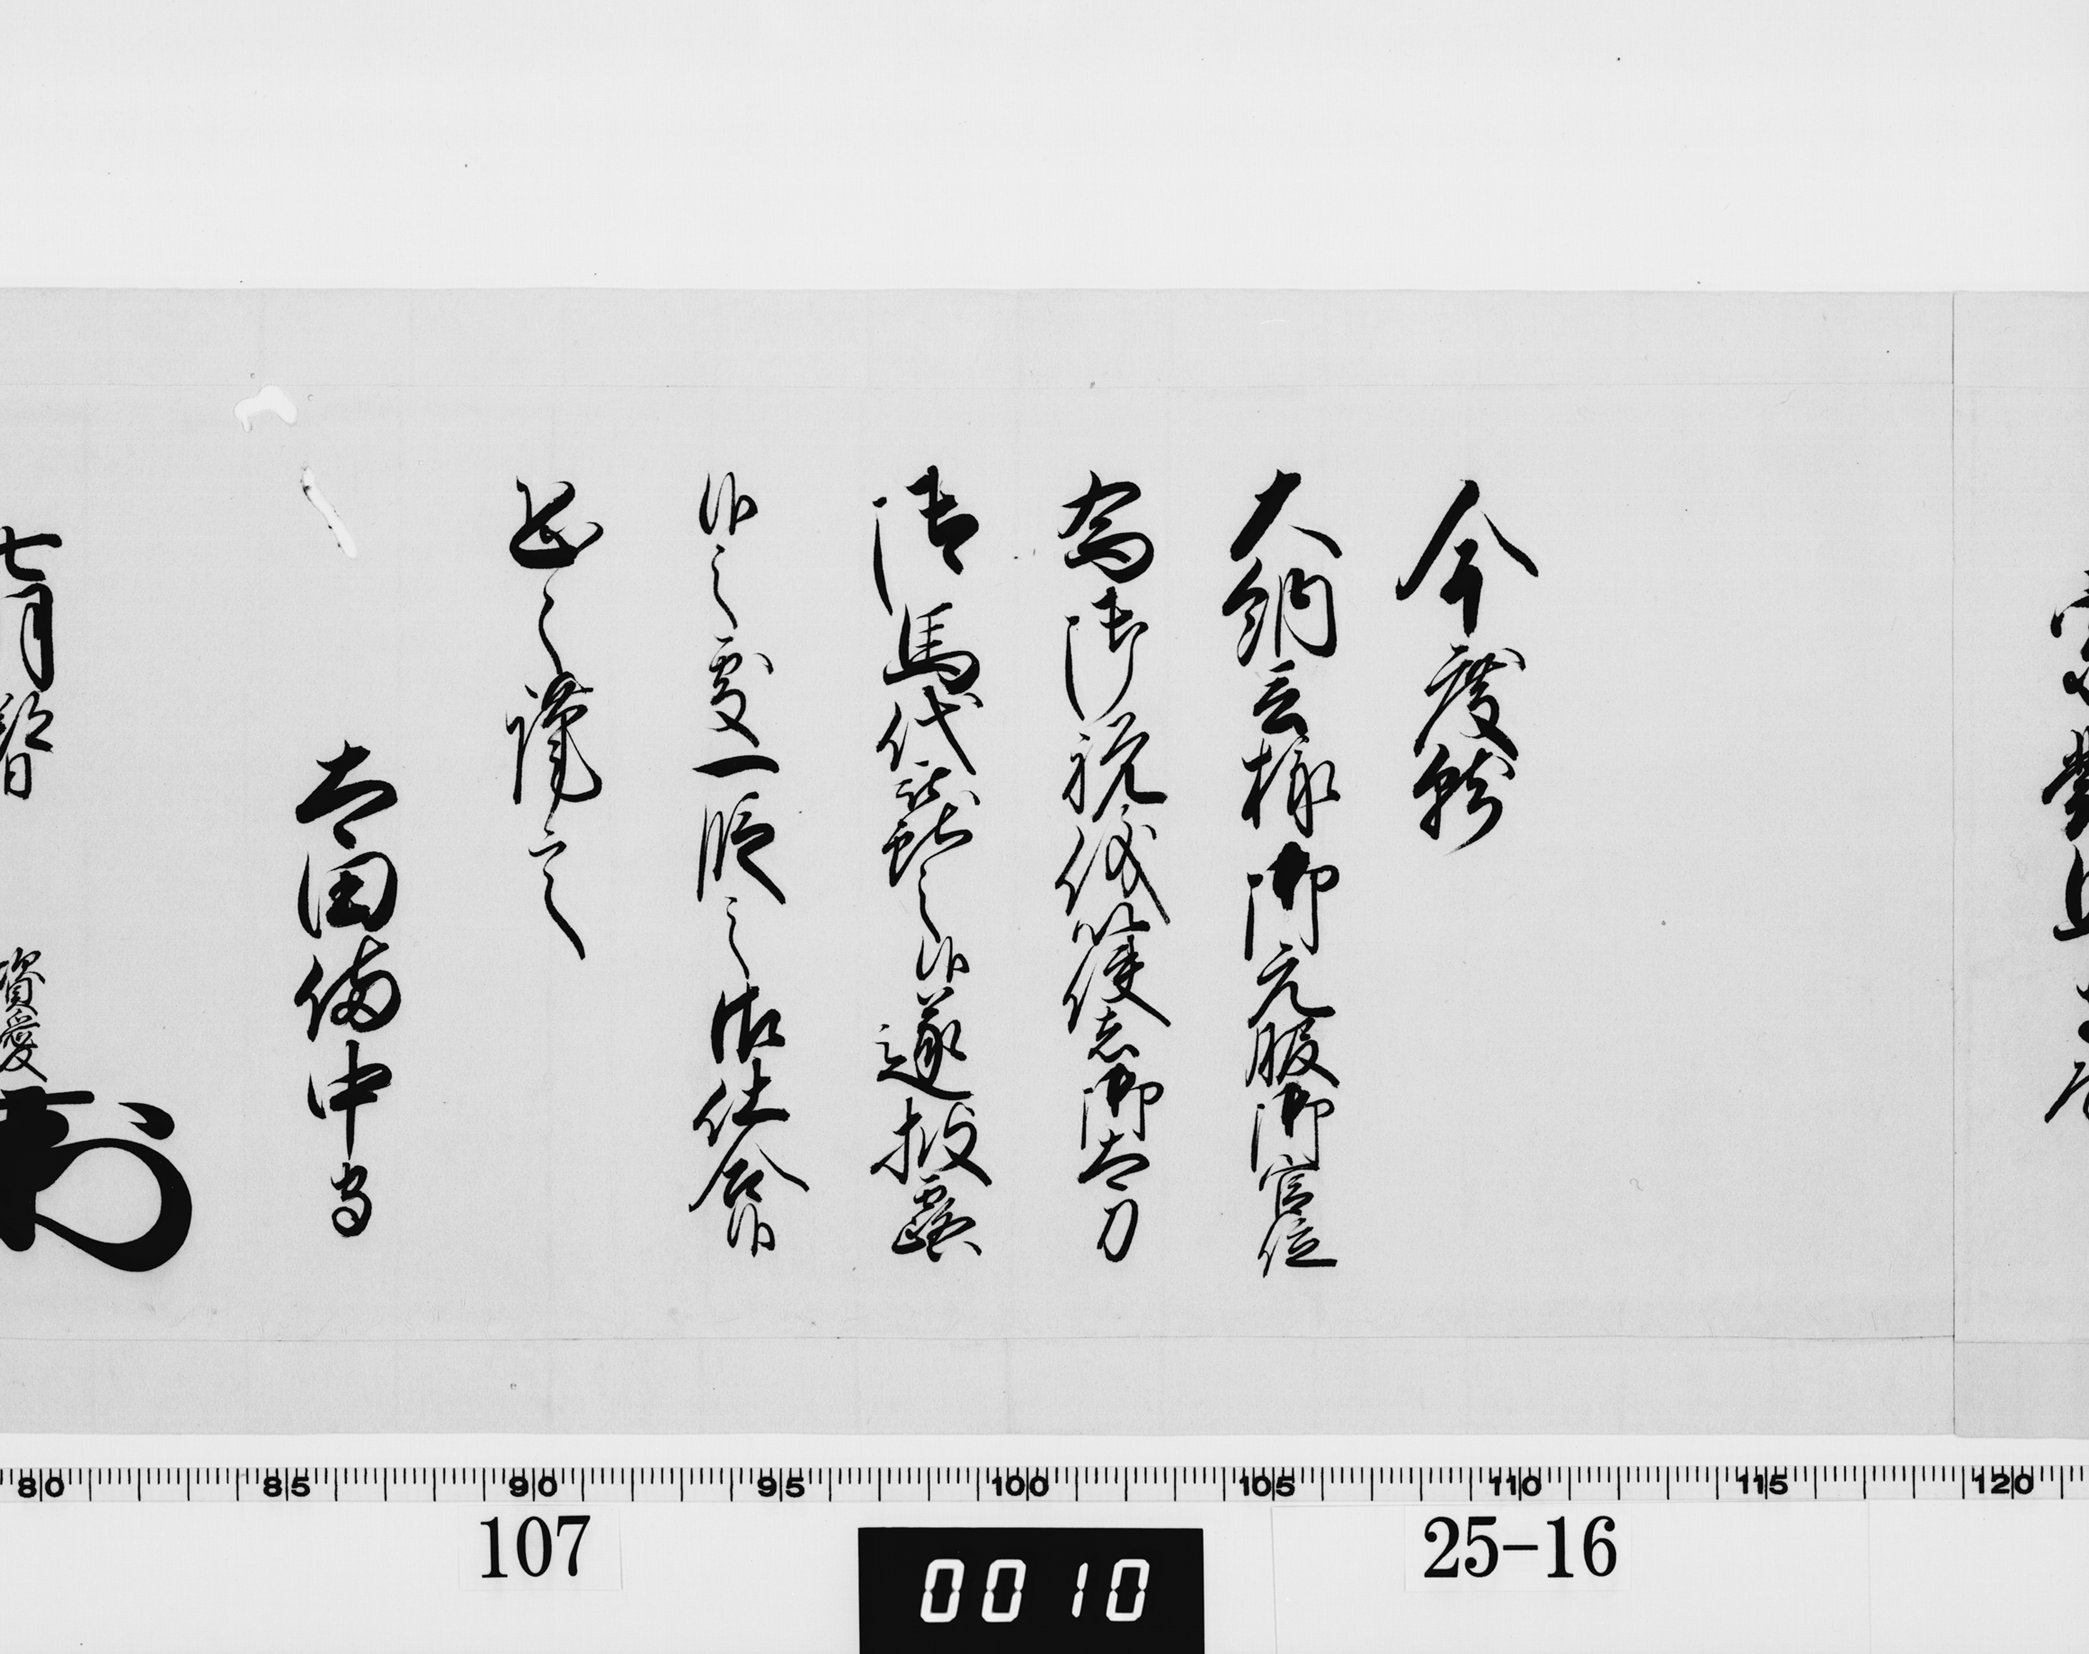 今度就
大納言様御元服御官位
為御祝儀以使者御太刀
御馬代被獻之候遂披露
候之處一段之御仕合候
恐々謹言
太田備中守
七月 日
資愛
80 85 90 95 100 105 110 115 120
107
0010
25-16